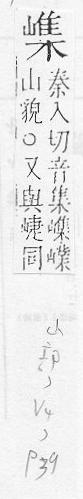 㠍
秦入切音集㠍嶫
山貌○又與崨同
山部、V4、P39